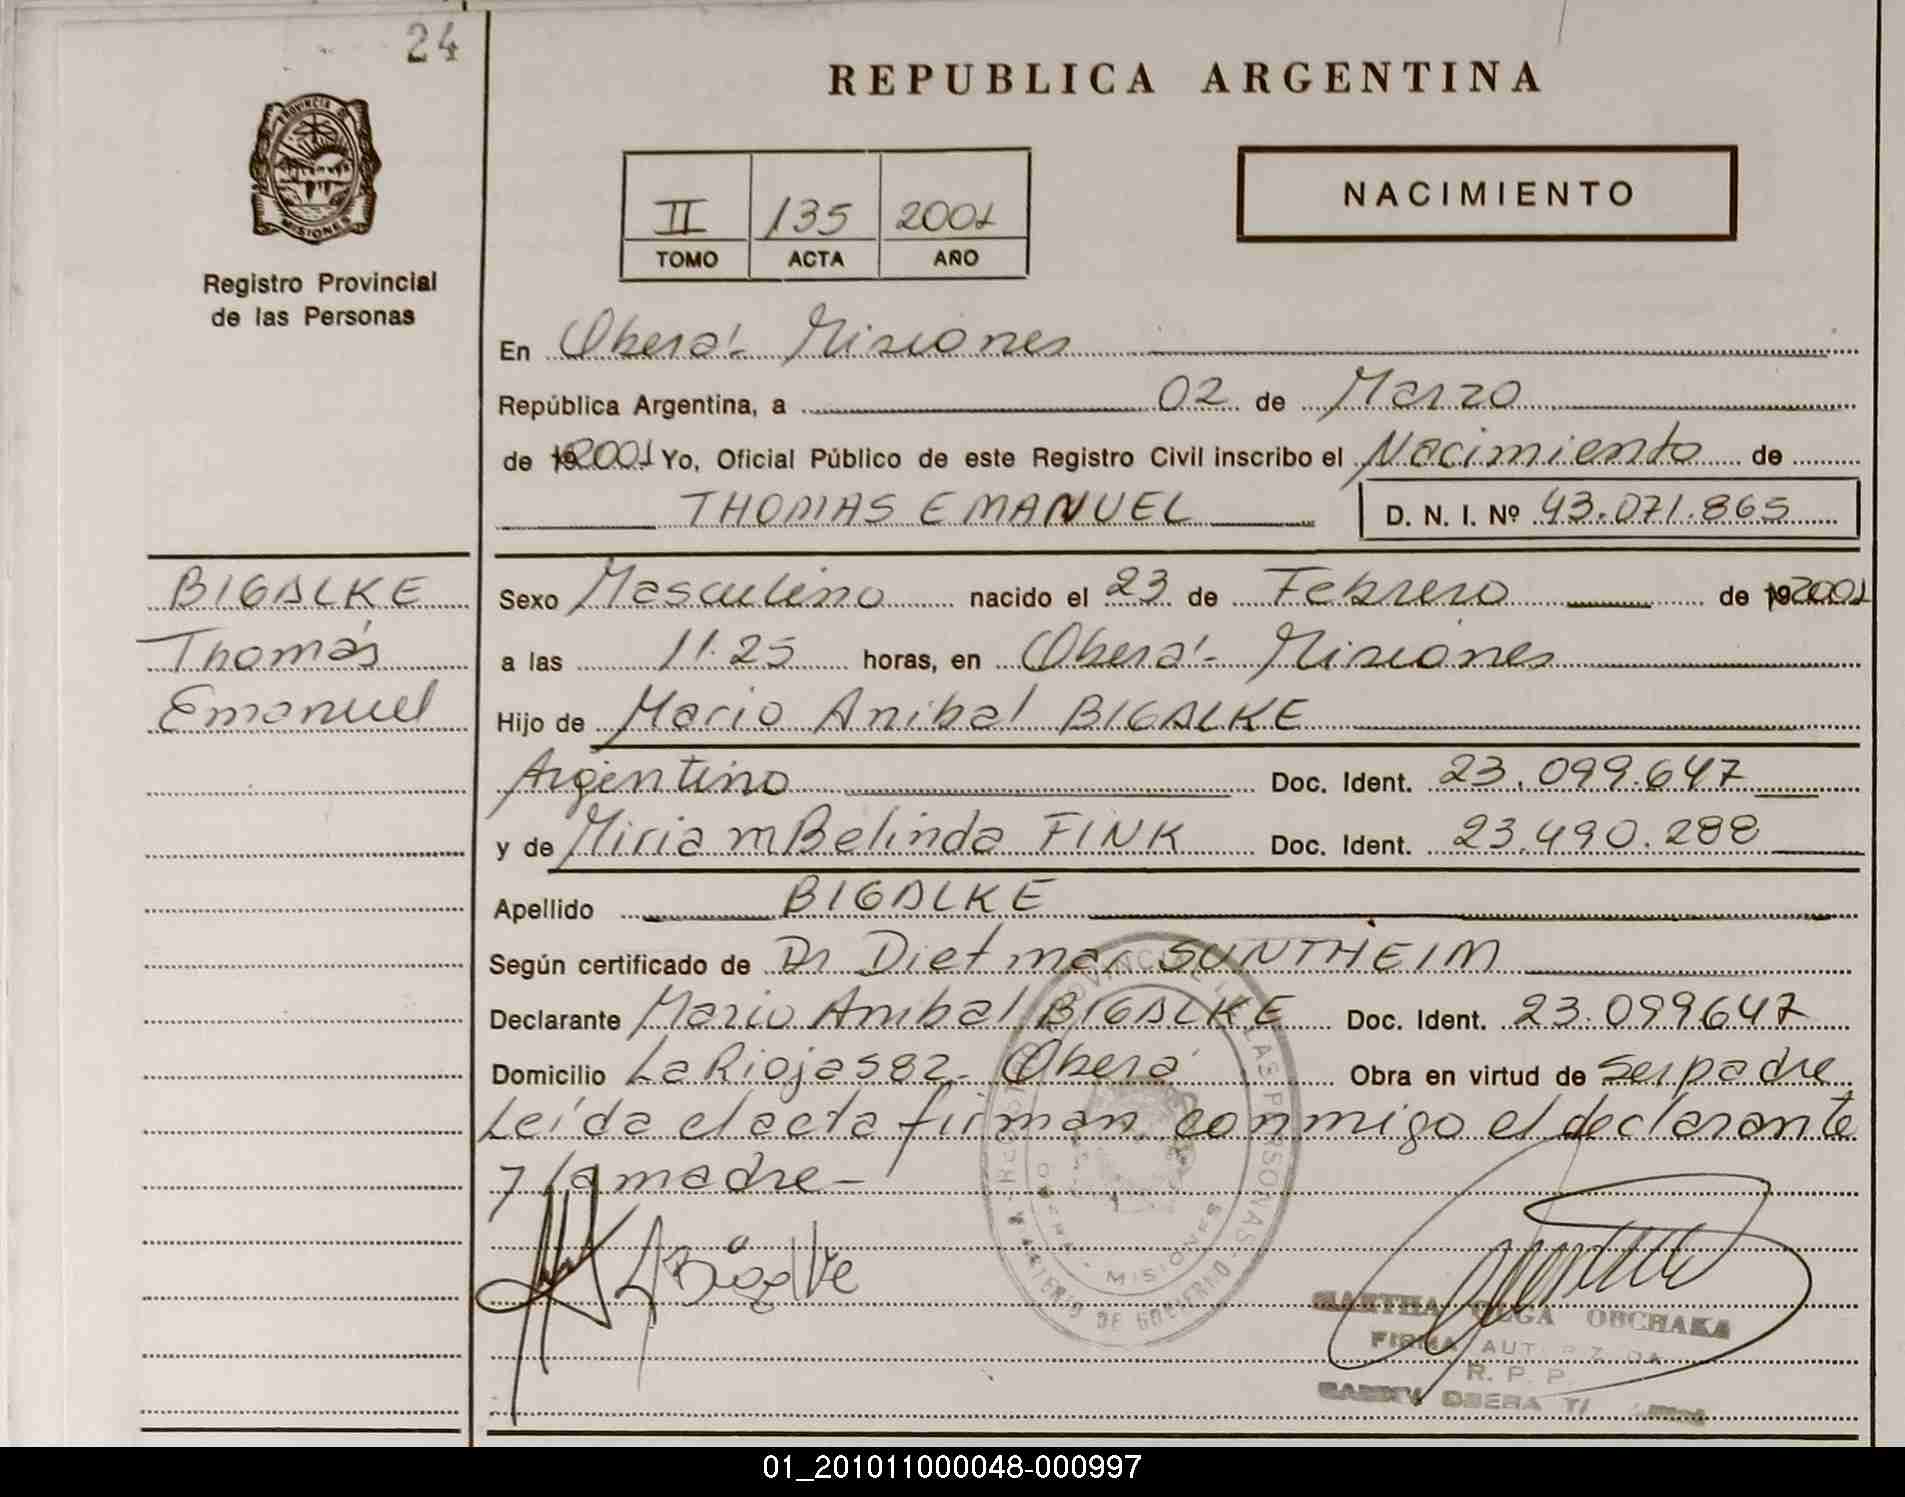 24
REPUBLICA ARGENTINA
PROVINCIA DE
MISIONES
Registro Provincial
de las Personas
II 135 2001
TOMO ACTA AÑO
NACIMIENTO
En Oberá - Misiones
República Argentina, a 02 de Marzo
de 19 2001 Yo, Oficial Público de este Registro Civil inscribo el Nacimiento de
THOMAS EMANUEL D. N. I. Nº 43.071.865
BIGALKE
Thomás
Emanuel
Sexo Masculino nacido el 23 de Febrero de 19 2001
a las 11.25 horas, en Oberá - Misiones
Hijo de Mario Anibal BIGALKE
Argentino Doc. Ident. 23.099.647
y de Miriam Belinda FINK Doc. Ident. 23.490.288
Apellido BIGALKE
Según certificado de Dr Dietmar SUNTHEIM
Declarante Mario Anibal BIGALKE Doc. Ident. 23.099647
Domicilio La Rioja 582 - Oberá Obra en virtud de ser padre
Leída el acta firman conmigo el declarante
y la madre -
MISIONES
MINISTERIO DE GOBIERNO
ABigalke
MARTHA OLGA OBCHAKA
FIRMA AUTORIZADA
R. P. P.
OBERA
01_201011000048-000997